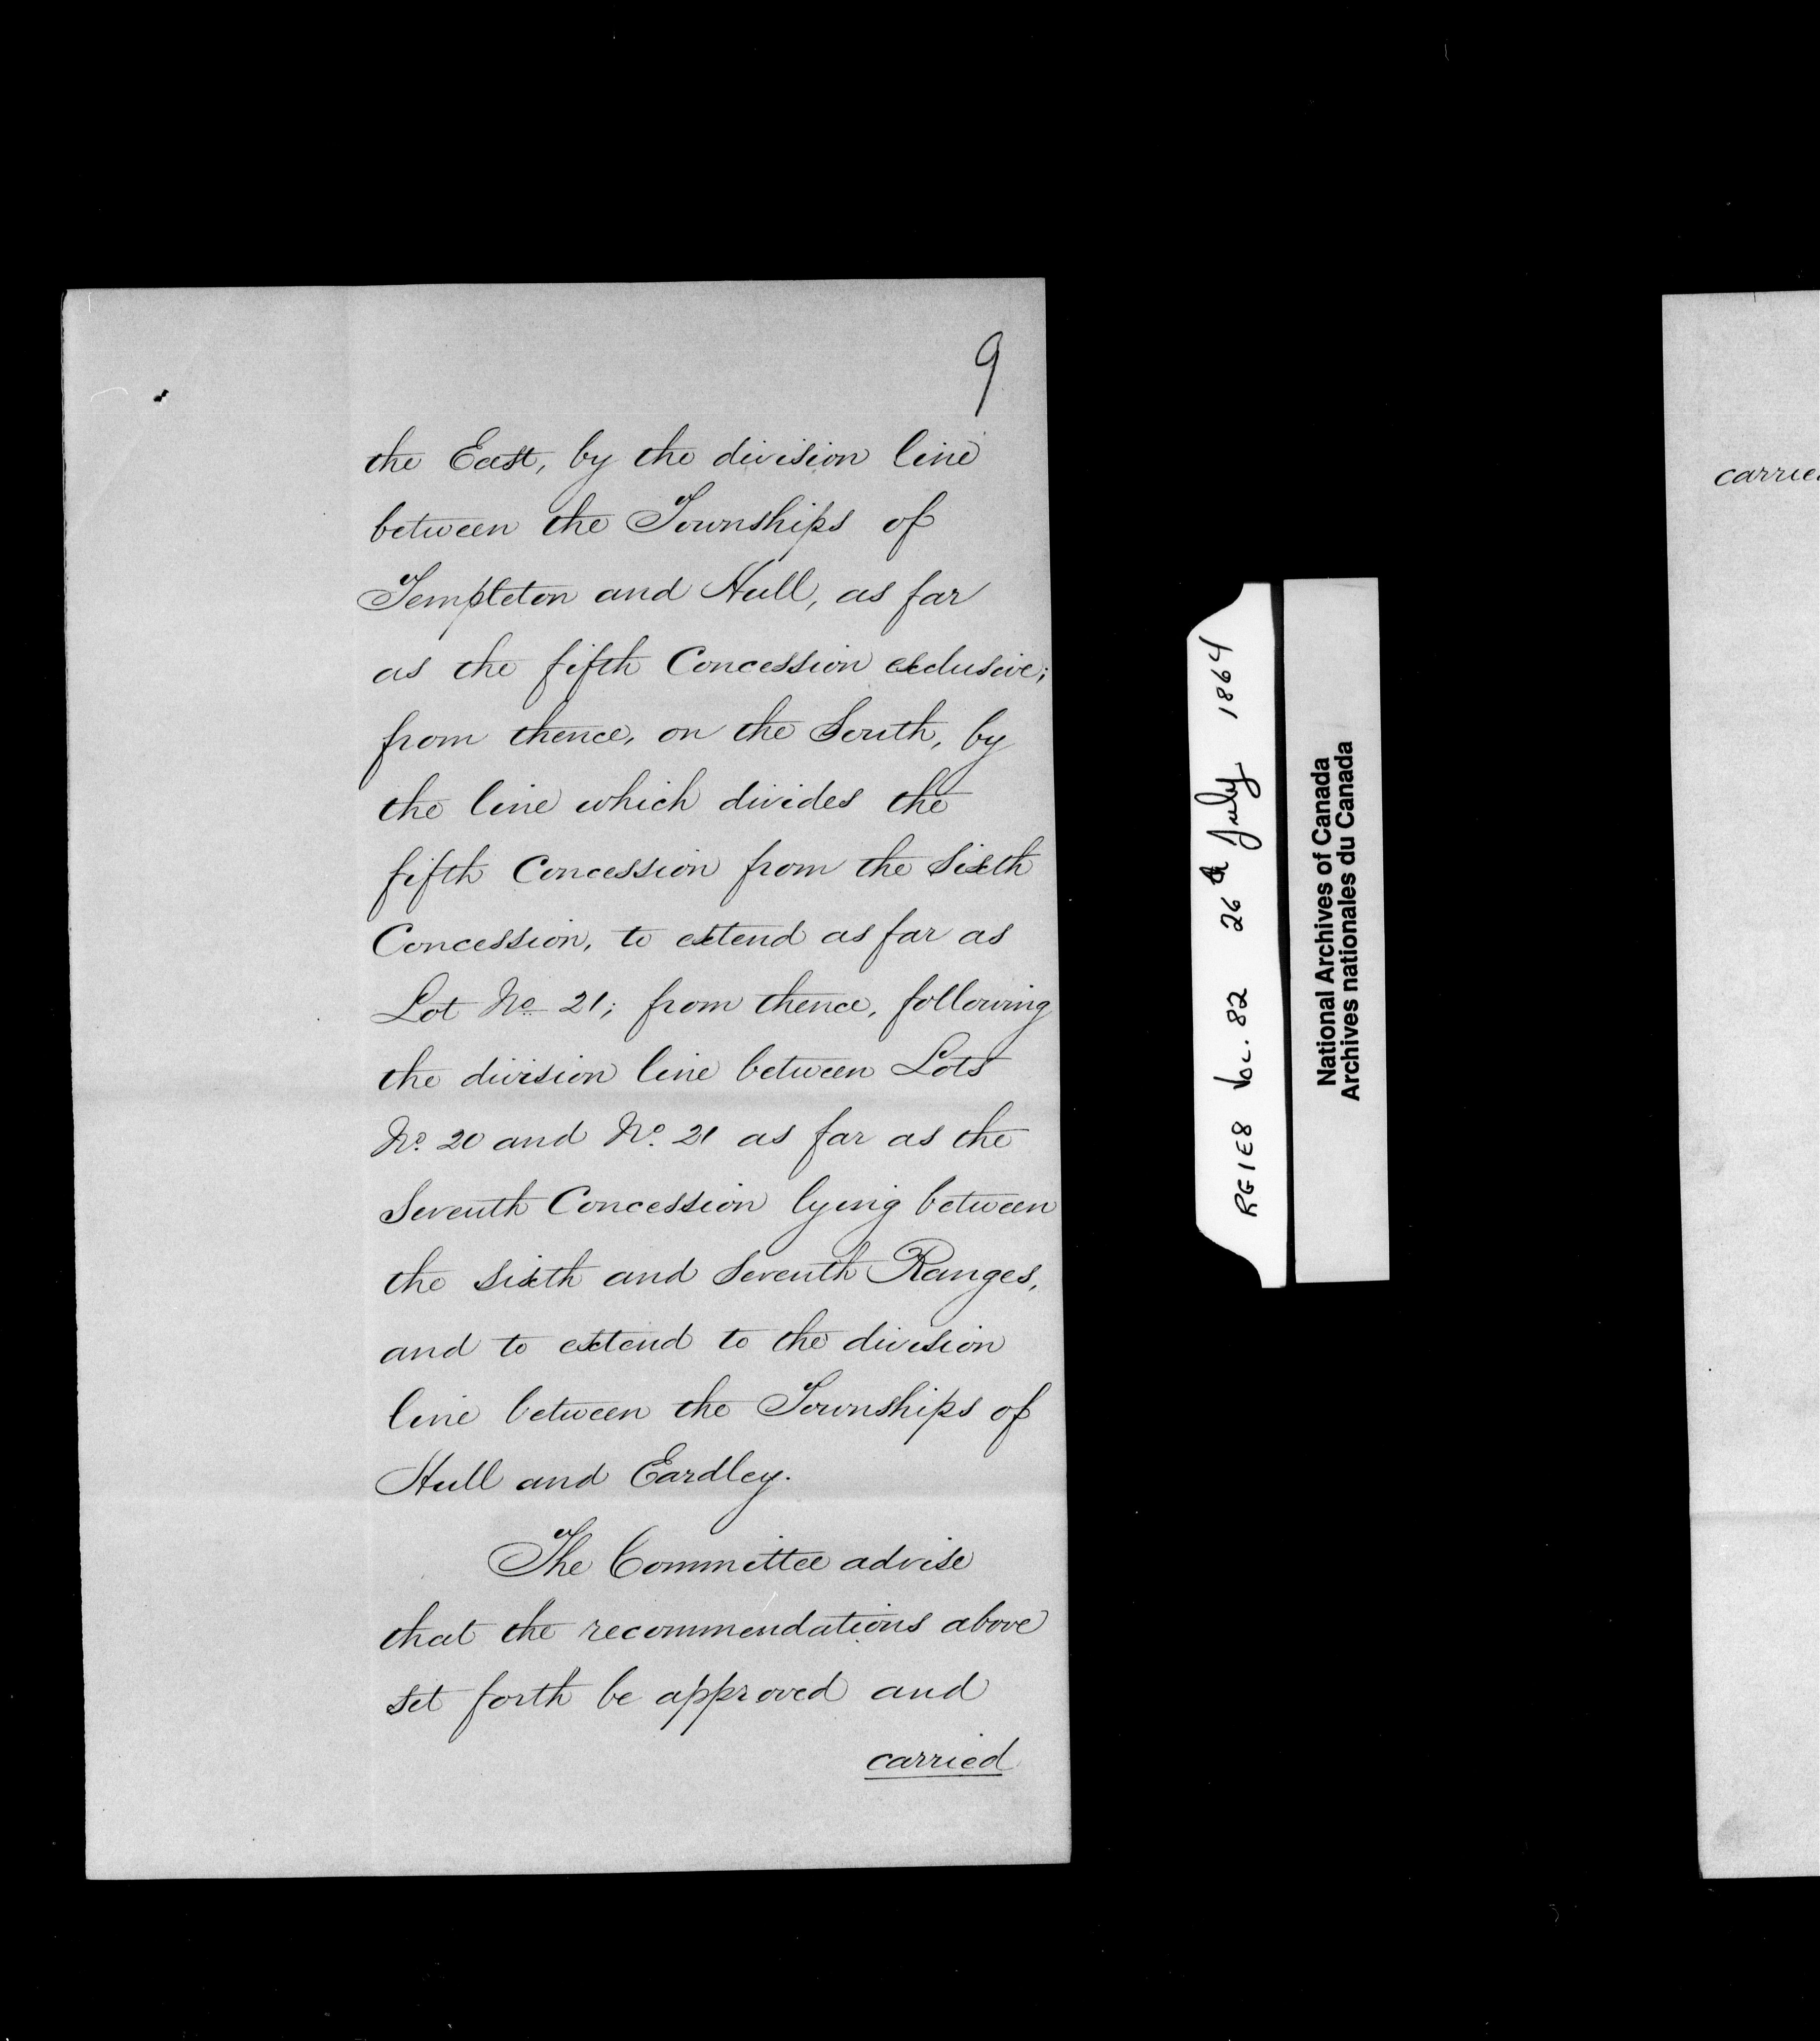 9
the East, by the division line
between the Townships of
Templeton and Hull, as far
as the fifth Concession exclusive;
from thence, on the South, by
the line which divides the
fifth Concession from the Sixth
Concession, to extend as far as
Lot No. 21; from thence, following
the division line between Lots
No. 20 and No. 21 as far as the
Seventh Concession lying between
the sixth and Seventh Ranges,
and to extend to the division
line between the Townships of
Hull and Eardley.
The Committee advise
that the recommendations above
set forth be approved and
carried
RG1E8 VOL. 82 26th July 1864
National Archives of Canada
Archives nationales du Canada